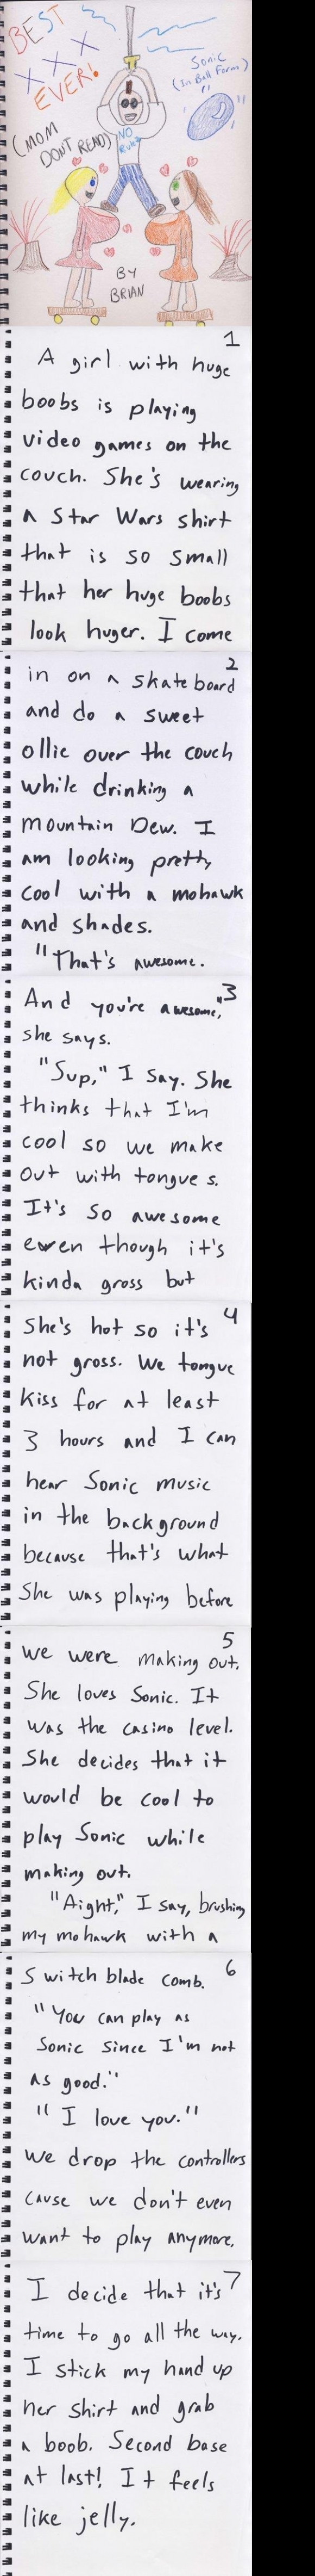 BEST
X X X
EVER!
(MOM
DON'T READ)
Sonic
(In Ball Form)
NO
Rules
BY
BRIAN
1
A girl with huge
boobs is playing
video games on the
couch. She's wearing
a Star Wars shirt
that is so small
that her huge boobs
look huger. I come
2
in on a skateboard
and do a sweet
ollie over the couch
while drinking a
Mountain Dew. I
am looking pretty
cool with a mohawk
and shades.
"That's awesome.
3
And you're awesome,"
she says.
"Sup," I say. She
thinks that I'm
cool so we make
out with tongues.
It's so awesome
even though it's
kinda gross but
4
she's hot so it's
not gross. We tongue
kiss for at least
3 hours and I can
hear Sonic music
in the background
because that's what
she was playing before
5
we were making out.
She loves Sonic. It
was the casino level.
She decides that it
would be cool to
play Sonic while
making out.
"Aight," I say, brushing
my mohawk with a
6
switch blade comb.
"You can play as
Sonic since I'm not
as good."
"I love you."
We drop the controllers
cause we don't even
want to play anymore.
7
I decide that it's
time to go all the way.
I stick my hand up
her shirt and grab
a boob. Second base
at last! It feels
like jelly.